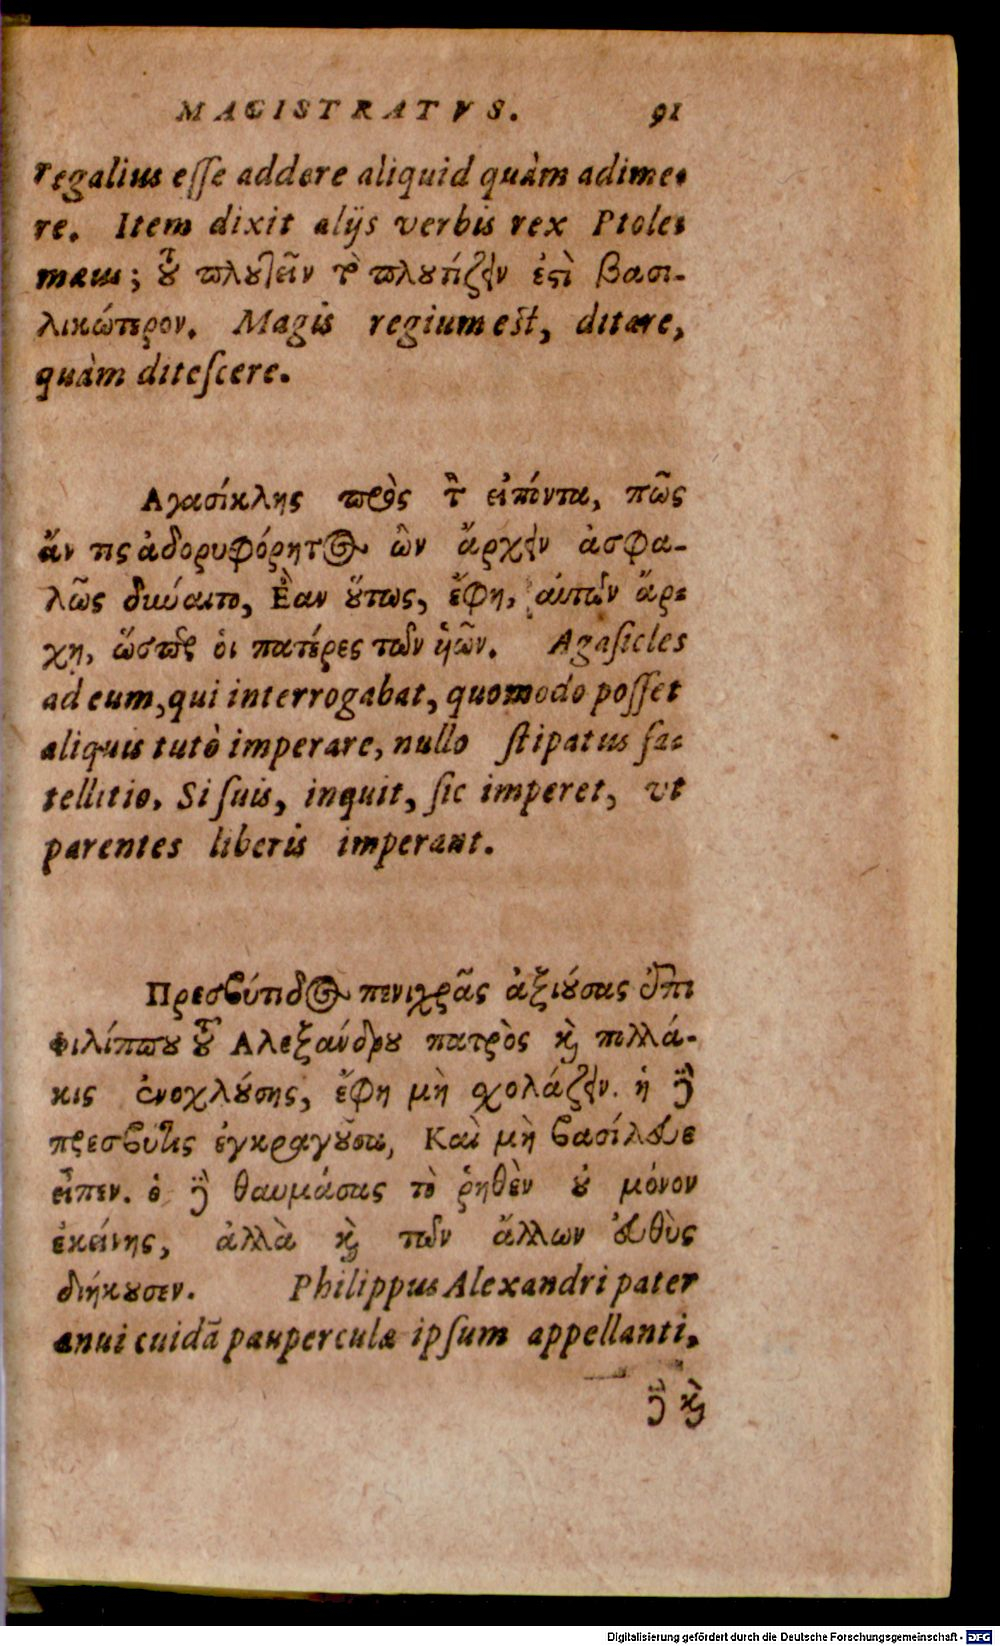 MAGISTRATVS. 91
regalius esse addere aliquid quàm adime-
re. Item dixit alijs verbis rex Ptole-
mæus; τοῦ πλουτεῖν τὸ πλουτίζειν ἐστὶ βασι-
λικώτερον. Magis regium est, ditare,
quàm ditescere.
Αγασίκλης πρὸς τὸν εἰπόντα, πῶς
ἄν τις ἀδορυφόρητος ὢν ἄρχειν ἀσφα-
λῶς δύναιτο, Ἐὰν οὕτως, ἔφη, αὐτῶν ἄρ-
χῃ, ὥσπερ οἱ πατέρες τῶν ὑῶν. Agasicles
ad eum, qui interrogabat, quomodo posset
aliquis tutò imperare, nullo stipatus sa-
tellitio, Si suis, inquit, sic imperet, vt
parentes liberis imperant.
Πρεσβύτιδος πενιχρᾶς ἀξιούσας ἐπὶ
φιλίππου τοῦ Αλεξάνδρου πατρὸς καὶ πολλά-
κις ἐνοχλούσης, ἔφη μὴ σχολάζειν. ἡ δὲ
πρεσβῦτις ἐγκραγοῦσα, Καὶ μὴ βασίλευε
εἶπεν. ὁ δὲ θαυμάσας τὸ ῥηθὲν οὐ μόνον
ἐκείνης, ἀλλὰ καὶ τῶν ἄλλων εὐθὺς
διήκουσεν. Philippus Alexandri pater
anui cuidã pauperculæ ipsum appellanti,
δὲ καὶ
Digitalisierung gefördert durch die Deutsche Forschungsgemeinschaft - DFG